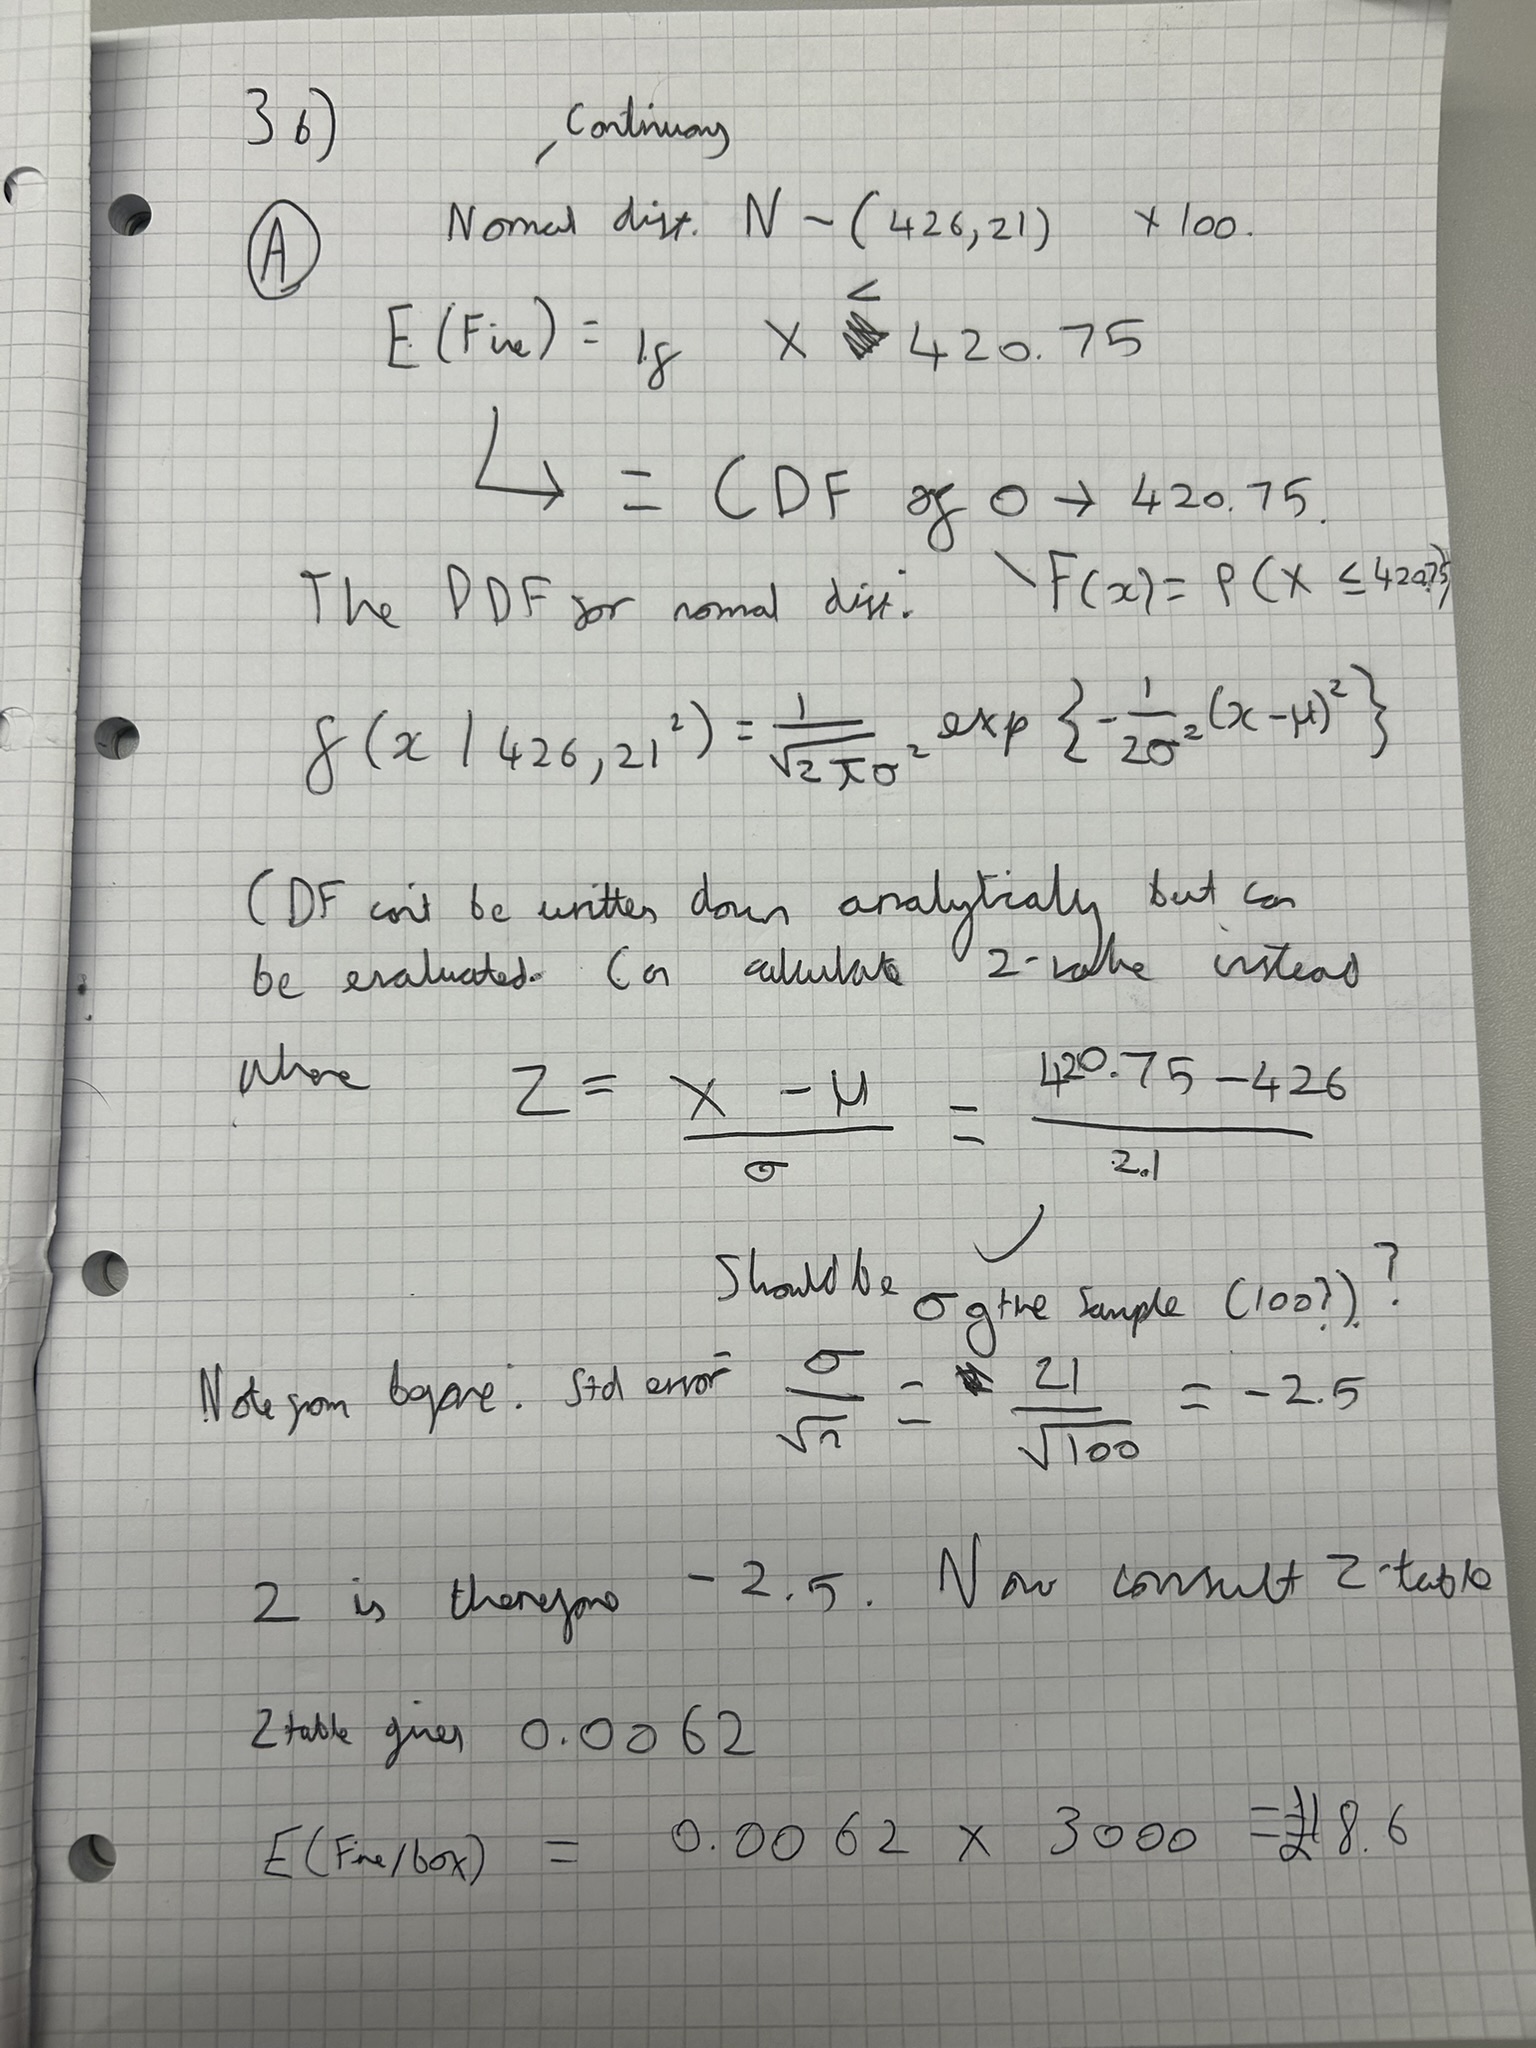 3b)
Continuous
(A) Normal dist. N ~ (426, 21) × 100.
E(Fine) = if X < 420.75
↳ = CDF of 0 → 420.75.
The PDF for normal dist: F(x) = P(X ≤ 420.75)
f(x | 426, 21²) = 1/√2πσ² exp {-1/2σ² (x-μ)²}
CDF can't be written down analytically but can
be evaluated. Can calculate Z-value instead
where Z = X - μ / σ = 420.75 - 426 / 2.1
✓
Should be σ of the sample (100?)?
Note from before: Std error σ/√n = 21/√100 = -2.5
Z is therefore -2.5. Now consult Z-table
Z table gives 0.0062
E(Fine/box) = 0.0062 × 3000 = £18.6